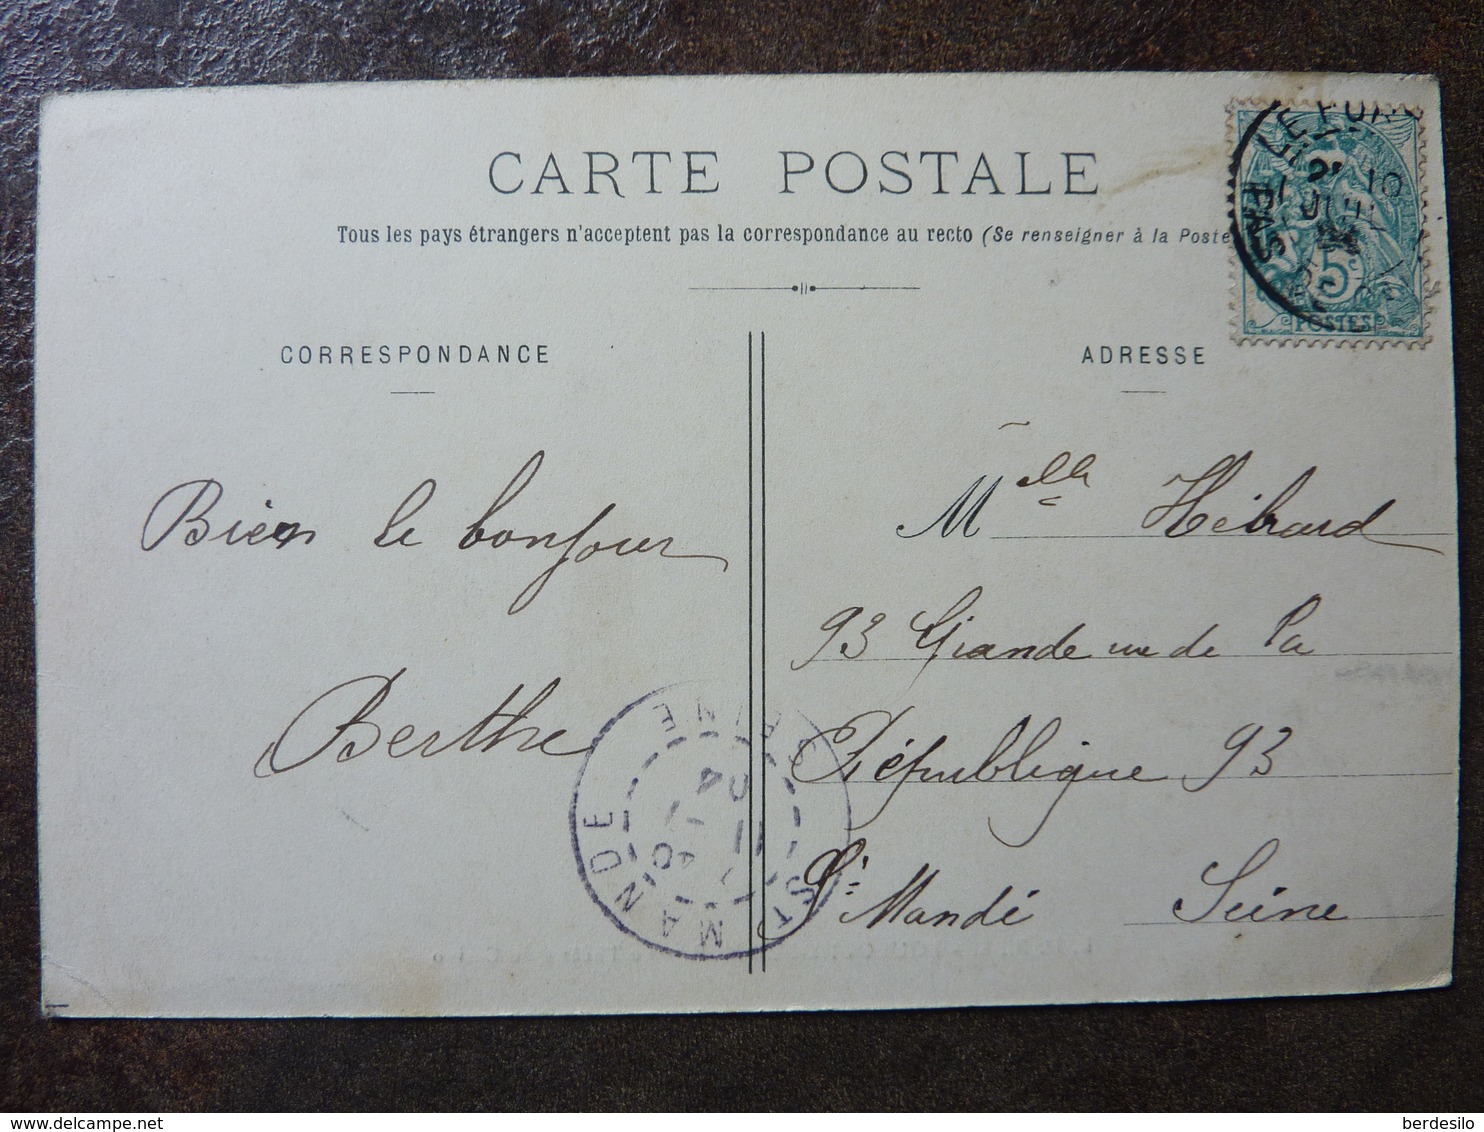 CARTE POSTALE
Tous les pays étrangers n'acceptent pas la correspondance au recto (Se renseigner à la Poste
CORRESPONDANCE
ADRESSE
5c
POSTES
Bien le bonjour
Berthe
Melle Hébrard
93 Grande rue de La
République 93
St Mandé Seine
ST MANDE SEINE
berdesilo